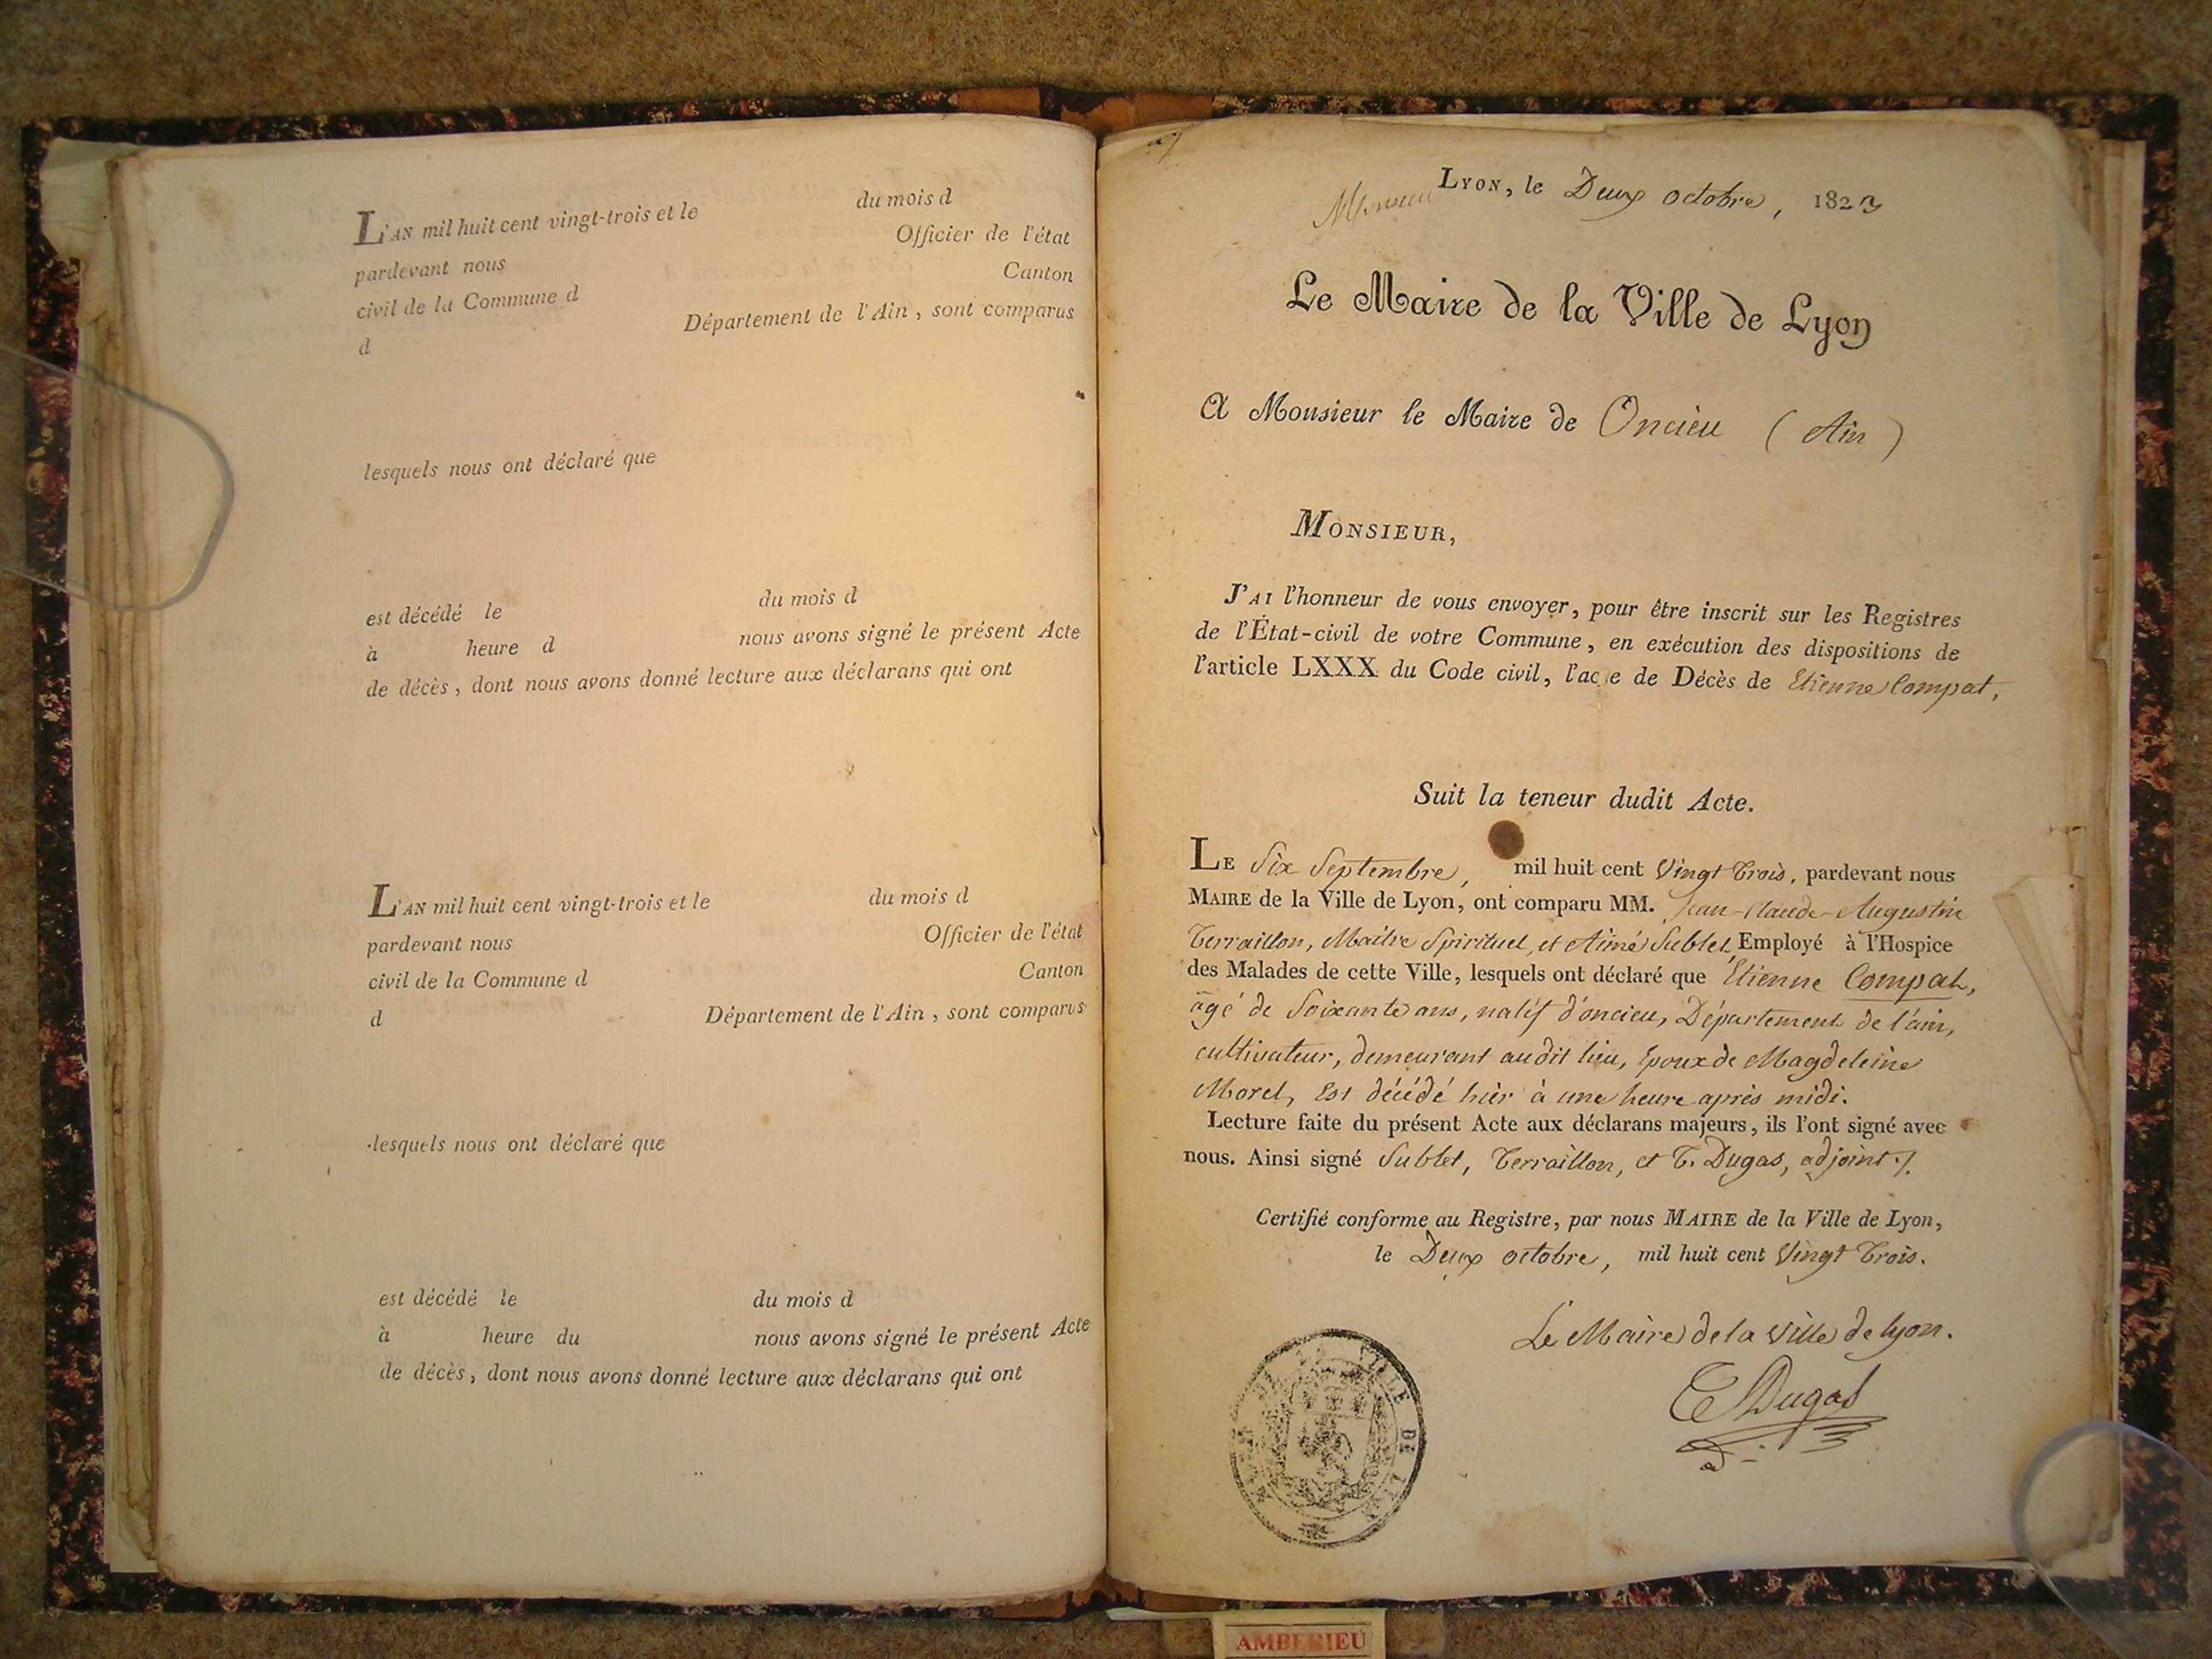 L'AN mil huit cent vingt-trois et le du mois d
pardevant nous Officier de l'état
civil de la Commune d Canton
d Département de l'Ain, sont comparus
lesquels nous ont déclaré que
est décédé le du mois d
à heure d nous avons signé le présent Acte
de décès, dont nous avons donné lecture aux déclarans qui ont
L'AN mil huit cent vingt-trois et le du mois d
pardevant nous Officier de l'état
civil de la Commune d Canton
d Département de l'Ain, sont comparus
lesquels nous ont déclaré que
est décédé le du mois d
à heure du nous avons signé le présent Acte
de décès, dont nous avons donné lecture aux déclarans qui ont
Monsieur
LYON, le Deux octobre, 1823
Le Maire de la Ville de Lyon
A Monsieur le Maire de Oncieu (Ain)
MONSIEUR,
J'AI l'honneur de vous envoyer, pour être inscrit sur les Registres
de l'État-civil de votre Commune, en exécution des dispositions de
l'article LXXX du Code civil, l'acte de Décès de Etienne Compat,
Suit la teneur dudit Acte.
LE Six Septembre, mil huit cent Vingt Trois, pardevant nous
MAIRE de la Ville de Lyon, ont comparu MM. Jean-Claude-Augustin
Terraillon, Maître Spirituel, et Aimé Sublet, Employé à l'Hospice
des Malades de cette Ville, lesquels ont déclaré que Etienne Compat,
âgé de Soixante ans, natif d'oncieu, Département de l'ain,
cultivateur, demeurant audit lieu, Epoux de Magdeleine
Morel, Est décédé hier à une heure après midi.
Lecture faite du présent Acte aux déclarans majeurs, ils l'ont signé avec
nous. Ainsi signé Sublet, Terraillon, et T. Dugas, adjoint ./.
Certifié conforme au Registre, par nous MAIRE de la Ville de Lyon,
le Deux octobre, mil huit cent Vingt Trois.
Le Maire de la Ville de Lyon.
T Dugas
VILLE DE LYON
AMBERIEU